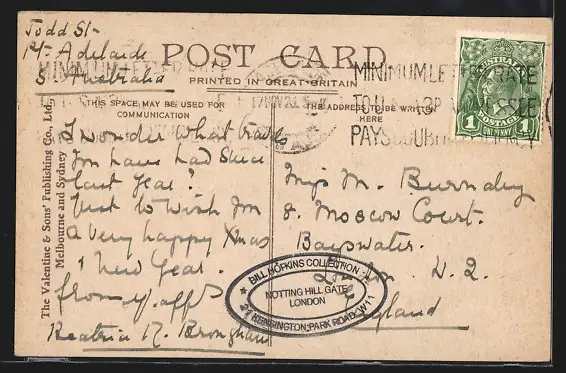 Todd St
Pt. Adelaide
S. Australia
POST CARD
PRINTED IN GREAT BRITAIN
THIS SPACE MAY BE USED FOR
COMMUNICATION
THE ADDRESS TO BE WRITTEN
HERE
MINIMUM LETTER RATE
TO U.
PAYS DOUBLE
AUSTRALIA
1
ONE PENNY
1
The Valentine & Sons' Publishing Co., Ltd.,
Melbourne and Sydney
I wonder what
you have had since
last year?
Just to wish you
a very happy Xmas
& New Year.
from y. aff
Beatrice M.
Miss M. Burnaby
8. Moscow Court.
Bayswater.
London W. 2.
England
BILL HOPKINS COLLECTION
NOTTING HILL GATE
LONDON
KENSINGTON PARK ROAD, W11